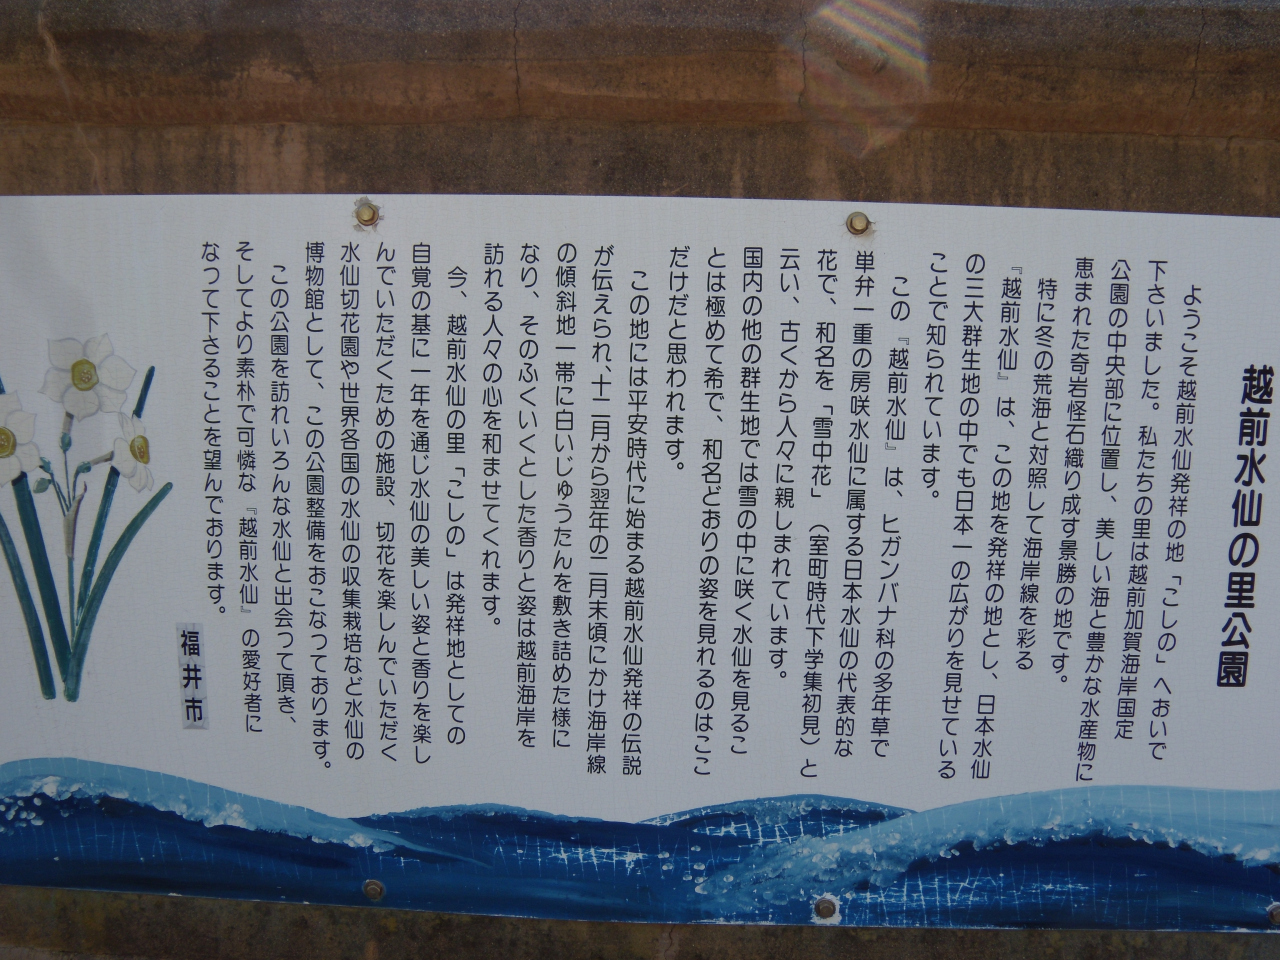 越前水仙の里公園
ようこそ越前水仙発祥の地「こしの」へおいで
下さいました。私たちの里は越前加賀海岸国定
公園の中央部に位置し、美しい海と豊かな水産物に
恵まれた奇岩怪石織り成す景勝の地です。
特に冬の荒海と対照して海岸線を彩る
『越前水仙』は、この地を発祥の地とし、日本水仙
の三大群生地の中でも日本一の広がりを見せている
ことで知られています。
この『越前水仙』は、ヒガンバナ科の多年草で
単弁一重の房咲水仙に属する日本水仙の代表的な
花で、和名を「雪中花」（室町時代下学集初見）と
云い、古くから人々に親しまれています。
国内の他の群生地では雪の中に咲く水仙を見るこ
とは極めて希で、和名どおりの姿を見れるのはここ
だけだと思われます。
この地には平安時代に始まる越前水仙発祥の伝説
が伝えられ、十二月から翌年の二月末頃にかけ海岸線
の傾斜地一帯に白いじゅうたんを敷き詰めた様に
なり、そのふくいくとした香りと姿は越前海岸を
訪れる人々の心を和ませてくれます。
今、越前水仙の里「こしの」は発祥地としての
自覚の基に一年を通じ水仙の美しい姿と香りを楽し
んでいただくための施設、切花を楽しんでいただく
水仙切花園や世界各国の水仙の収集栽培など水仙の
博物館として、この公園整備をおこなっております。
この公園を訪れいろんな水仙と出会って頂き、
そしてより素朴で可憐な『越前水仙』の愛好者に
なって下さることを望んでおります。
福井市